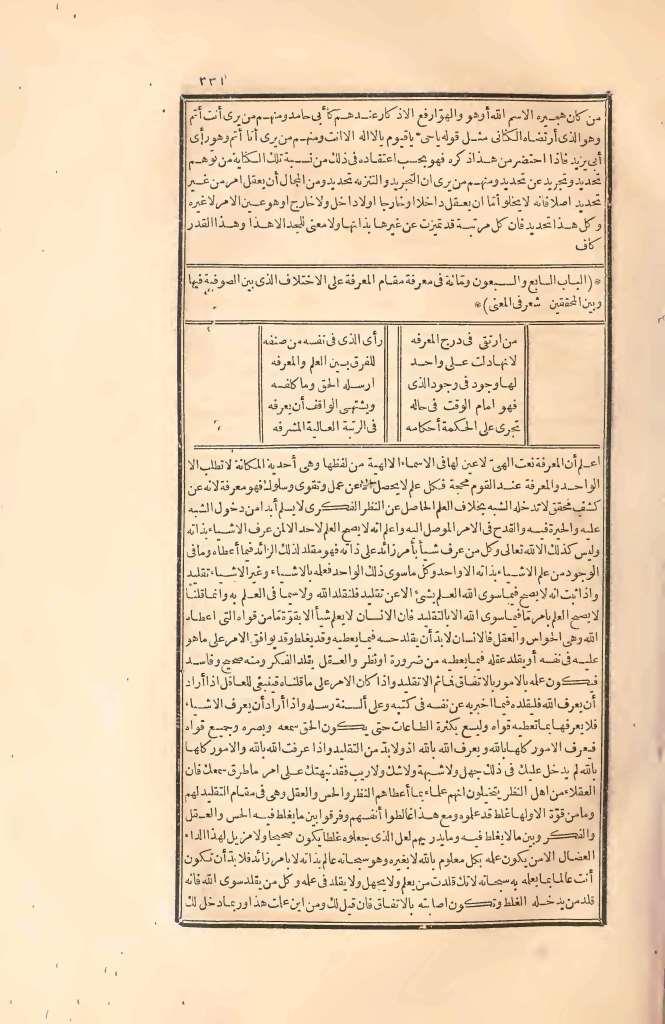 ٣٣١
من كان هجيره الاسم الله أوهو والهوارفع الاذكار عندهم كأبي حامد ومنهم من يرى أنت أتم
وهو الذى أرتضاه الكتانى مثل قوله ياحى ياقيوم يالااله الاانت ومنهم من يرى أنا أتم وهو رأى
أبى يزيد فاذا احتضر من هذا ذكره فهو بحسب اعتقاده فى ذلك من نسبة تلك الكناية من توهم
تحديد وتجريد عن تحديد ومنهم من يرى ان التجريد والتنزيه تحديد ومن المجال أن يعقل امر من غير
تحديد اصلا فانه لا يخلو امّا ان يعقل داخلا او خارجا اولا داخل ولا خارج اوهو عين الامر لا غيره
وكل هذا تحديد فان كل مرتبة قد تميزت عن غيرها بذاتها ولا معنى للحد الا هذا وهذا القدر
كاف
*(الباب السابع والسبعون ومائة فى معرفة مقام المعرفة على الاختلاف الذى بين الصوفية فيها
وبين المحققين شعر فى المعنى)*
من ارتقى فى درج المعرفه رأى الذى فى نفسه من صفه
لانها دلت على واحد للفرق بين العلم والمعرفه
لها وجود فى وجود الذى ارسله الحق وما كلفه
فهو امام الوقت فى حاله ويشتهى الواقف أن يعرفه
تجرى على الحكمة أحكامه فى الرتبة العالية المشرفه
اعلم أن المعرفة نعت الهىّ لاعين لها فى الاسماء الالهية من لفظها وهى أحدية المكانة لا تطلب الا
الواحد والمعرفة عند القوم محجة فكل علم لا يحصل الا عن عمل وتقوى وسلوك فهو معرفة لانه عن
كشف محقق لا تدخله الشبه بخلاف العلم الحاصل عن النظر الفكرى لا يسلم أبدا من دخول الشبه
عليه والحيرة فيه والقدح فى الامر الموصل اليه واعلم انه لا يصح العلم لاحد الا لمن عرف الاشياء بذاته
وليس كذلك الا الله تعالى وكل من عرف شيأ بأمر زائد على ذاته فهو مقلد لذلك الزائد فيما أعطاه وما فى
الوجود من علم الاشياء بذاته الا واحد وكل ما سوى ذلك الواحد فعلمه بالاشياء وغير الاشياء تقليد
واذا ثبت انه لا يصح فيما سوى الله العلم بشئ الا عن تقليد فلنقلد الله ولا سيما فى العلم به وانما قلنا
لا يصح العلم بامر ما فيما سوى الله الا بالتقليد فان الانسان لا يعلم شيأ الا بقوّة مّا من قواه التى اعطاه
الله وهى الحواس والعقل فالانسان لا بدّ أن يقلد حسه فيما يعطيه وقد يغلط وقد يوافق الامر على ما هو
عليه فى نفسه أو يقلد عقله فيما يعطيه من ضرورة او نظر والعقل يقلد الفكر ومنه صحيح وفاسد
فيكون علمه بالامور بالاتفاق فما ثم الا تقليد واذا كان الامر على ما قلناه فينبغى للعاقل اذا أراد
أن يعرف الله فليقلده فيما اخبر به عن نفسه فى كتبه وعلى ألسنة رسله واذا أراد أن يعرف الاشياء
فلا يعرفها بما تعطيه قواه وليسع بكثرة الطاعات حتى يكون الحق سمعه وبصره وجميع قواه
فيعرف الامور كلها بالله ويعرف الله بالله اذ ولا بدّ من التقليد واذا عرفت الله بالله والامور كلها
بالله لم يدخل عليك فى ذلك جهل ولا شبهة ولا شك ولا ريب فقد نبهتك على امر ما طرق سمعك فان
العقلاء من اهل النظر يتخيلون انهم علماء بما أعطاهم النظر والحس والعقل وهى فى مقام التقليد لهم
وما من قوّة الا ولها غلط قد علموه ومع هذا غالطوا أنفسهم وفرقوا بين ما يغلط فيه الحس والعقل
والفكر وبين ما لا يغلط فيه وما يدريهم لعل الذى جعلوه غلطا يكون صحيحا ولا مزيل لهذا الداء
العضال الا من يكون علمه بكل معلوم بالله لا بغيره وهو سبحانه عالم بذاته لا بامر زائد فلا بدّ أن تكون
أنت عالما بما يعلمه به سبحانه لانك قلدت من يعلم ولا يجهل ولا يقلد فى علمه وكل من يقلد سوى الله فانه
قلد من يدخله الغلط وتكون اصابته بالاتفاق فان قيل لك ومن اين علمت هذا وربما دخل لك